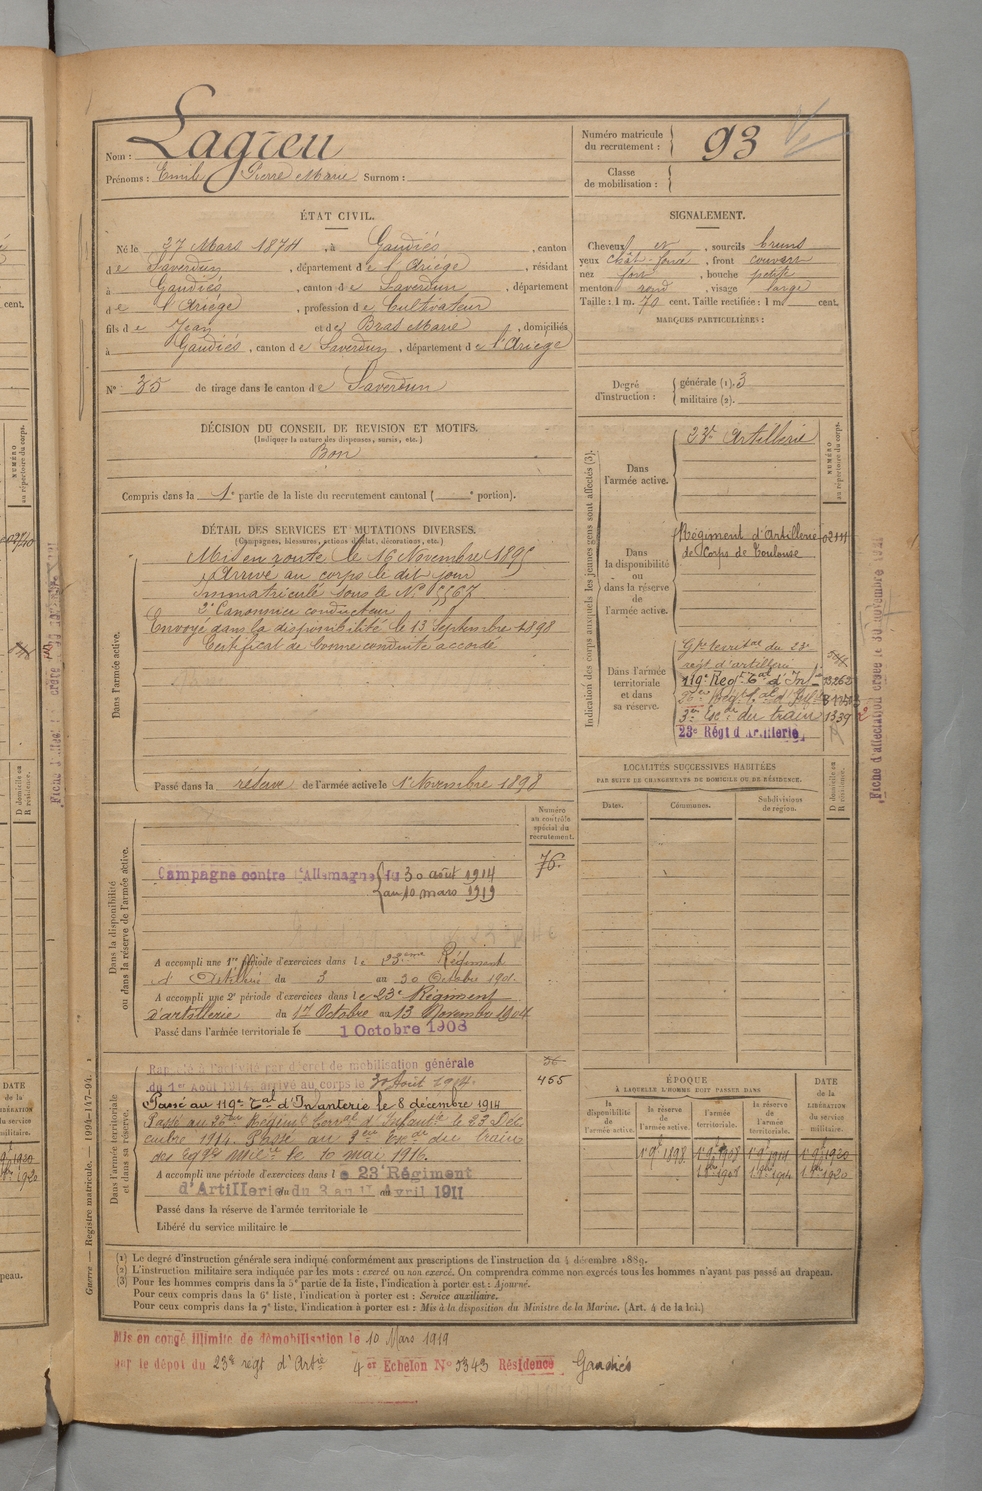 Nom : Lagreu
Prénoms : Emile Pierre Marie Surnom :
Numéro matricule du recrutement : 93
Classe de mobilisation :
ÉTAT CIVIL.
Né le 27 Mars 1874, à Gaudiés, canton
de Saverdun, département de l'Ariége, résidant
à Gaudiés, canton de Saverdun, département
de l'Ariége, profession de Cultivateur
fils de Jean et de Bras Marie, domiciliés
à Gaudiés, canton de Saverdun, département de l'Ariege
No 35 de tirage dans le canton de Saverdun
SIGNALEMENT.
Cheveux et, sourcils bruns
yeux chât. foncé, front couvert
nez fort, bouche petite
menton rond, visage large
Taille : 1 m. 70 cent. Taille rectifiée : 1 m. cent.
MARQUES PARTICULIÈRES :
Degré d'instruction : générale (1). 3
militaire (2).
DÉCISION DU CONSEIL DE REVISION ET MOTIFS.
(Indiquer la nature des dispenses, sursis, etc.)
Bon
Compris dans la 1e partie de la liste du recrutement cantonal ( e portion).
DÉTAIL DES SERVICES ET MUTATIONS DIVERSES.
(Campagnes, blessures, actions d'éclat, décorations, etc.)
Dans l'armée active.
Mis en route le 16 Novembre 1895
Arrivé au corps le dit jour
Immatriculé sous le No
2e Canonnier conducteur
Envoyé dans la disponibilité le 13 Septembre 1898
Certificat de bonne conduite accordé
Passé dans la réserve de l'armée active le 1er Novembre 1898
Indication des corps auxquels les jeunes gens sont affectés (3).
NUMÉRO au répertoire du corps.
Dans l'armée active.
23e Artillerie
Dans la disponibilité ou dans la réserve de l'armée active.
Régiment d'Artillerie
de Corps de Toulouse
Dans l'armée territoriale et dans sa réserve.
Gpe territal du 23e
régt d'artillerie
119e Regt Tal d'Infie
3em Escon du train 1339
23e Régt d'Artillerie
Fiche d'affectation créée le 30 novembre 1921
LOCALITÉS SUCCESSIVES HABITÉES
PAR SUITE DE CHANGEMENTS DE DOMICILE OU DE RÉSIDENCE.
Dates. Communes. Subdivisions de région. D domicile ou R résidence.
Dans la disponibilité ou dans la réserve de l'armée active.
Numéro au contrôle spécial du recrutement.
76
Campagne contre l'Allemagne du 30 août 1914
au 10 mars 1919
A accompli une 1re période d'exercices dans le 23ème Régiment
d'Artillerie du 3 au 30 Octobre 1901.
A accompli une 2e période d'exercices dans le 23e Régiment
d'artillerie du 17 Octobre au 13 Novembre 1904
Passé dans l'armée territoriale le 1 Octobre 1908
Dans l'armée territoriale et dans sa réserve.
455
Rappelé à l'activité par décret de mobilisation générale
du 1er Août 1914, arrivé au corps le 30 Août 1914.
Passé au 119e Tal d'Infanterie le 8 décembre 1914
Passé au Régimt Terral d'Infantie le 23 Déc
embre 1914. Passé au 3em Escon du train
des Eqges Milres le 10 mai 1916.
A accompli une période d'exercices dans le 23e Régiment
d'Artillerie du 3 au 11 avril 1911
Passé dans la réserve de l'armée territoriale le
Libéré du service militaire le
ÉPOQUE
À LAQUELLE L'HOMME DOIT PASSER DANS
la disponibilité de l'armée active. la réserve de l'armée active. l'armée territoriale. la réserve de l'armée territoriale.
DATE de la LIBÉRATION du service militaire.
1er 9bre 1898 1er 9bre 1908 1er 9bre 1914 1er 9bre 1920
1er 8bre 1908 1er 8bre 1914 1er 8bre 1920
Guerre. — Registre matricule. — 1094-147-94.
(1) Le degré d'instruction générale sera indiqué conformément aux prescriptions de l'instruction du 4 décembre 1889.
(2) L'instruction militaire sera indiquée par les mots : exercé ou non exercé. On comprendra comme non exercés tous les hommes n'ayant pas passé au drapeau.
(3) Pour les hommes compris dans la 5e partie de la liste, l'indication à porter est : Ajourné.
Pour ceux compris dans la 6e liste, l'indication à porter est : Service auxiliaire.
Pour ceux compris dans la 7e liste, l'indication à porter est : Mis à la disposition du Ministre de la Marine. (Art. 4 de la loi.)
Mis en congé illimité de démobilisation le 10 Mars 1919
par le dépôt du 23e régt d'Artie 4em Echelon No 5343 Résidence Gaudiés